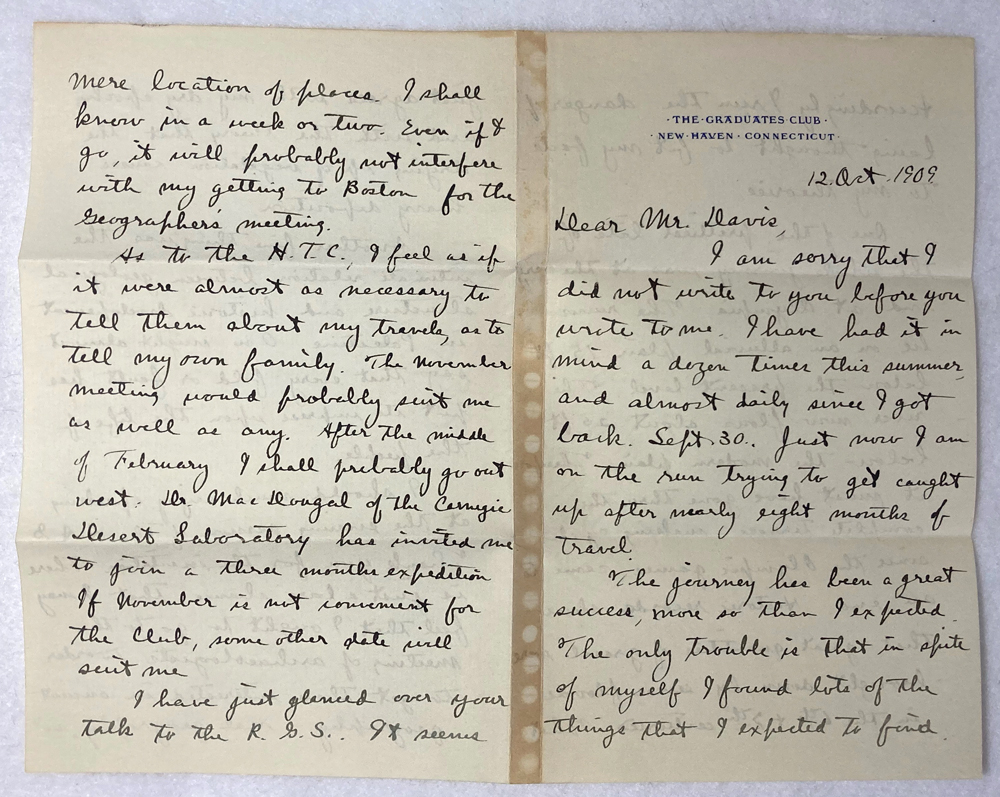 · THE · GRADUATES CLUB ·
· NEW · HAVEN · CONNECTICUT ·
12. Oct. 1909
Dear Mr. Davis,
I am sorry that I
did not write to you before you
wrote to me. I have had it in
mind a dozen times this summer,
and almost daily since I got
back. Sept. 30. Just now I am
on the run trying to get caught
up after nearly eight months of
travel.
The journey has been a great
success, more so than I expected.
The only trouble is that in spite
of myself I found lots of the
things that I expected to find.
mere location of places. I shall
know in a week or two. Even if I
go, it will probably not interfere
with my getting to Boston for the
Geographers' meeting.
As to the H.T.C., I feel as if
it were almost as necessary to
tell them about my travels, as to
tell my own family. The November
meeting would probably suit me
as well as any. After the middle
of February I shall probably go out
west. Dr. MacDougal of the Carnegie
Desert Laboratory has invited me
to join a three months expedition
If November is not convenient for
the Club, some other date will
suit me
I have just glanced over your
talk to the R.G.S.. It seems